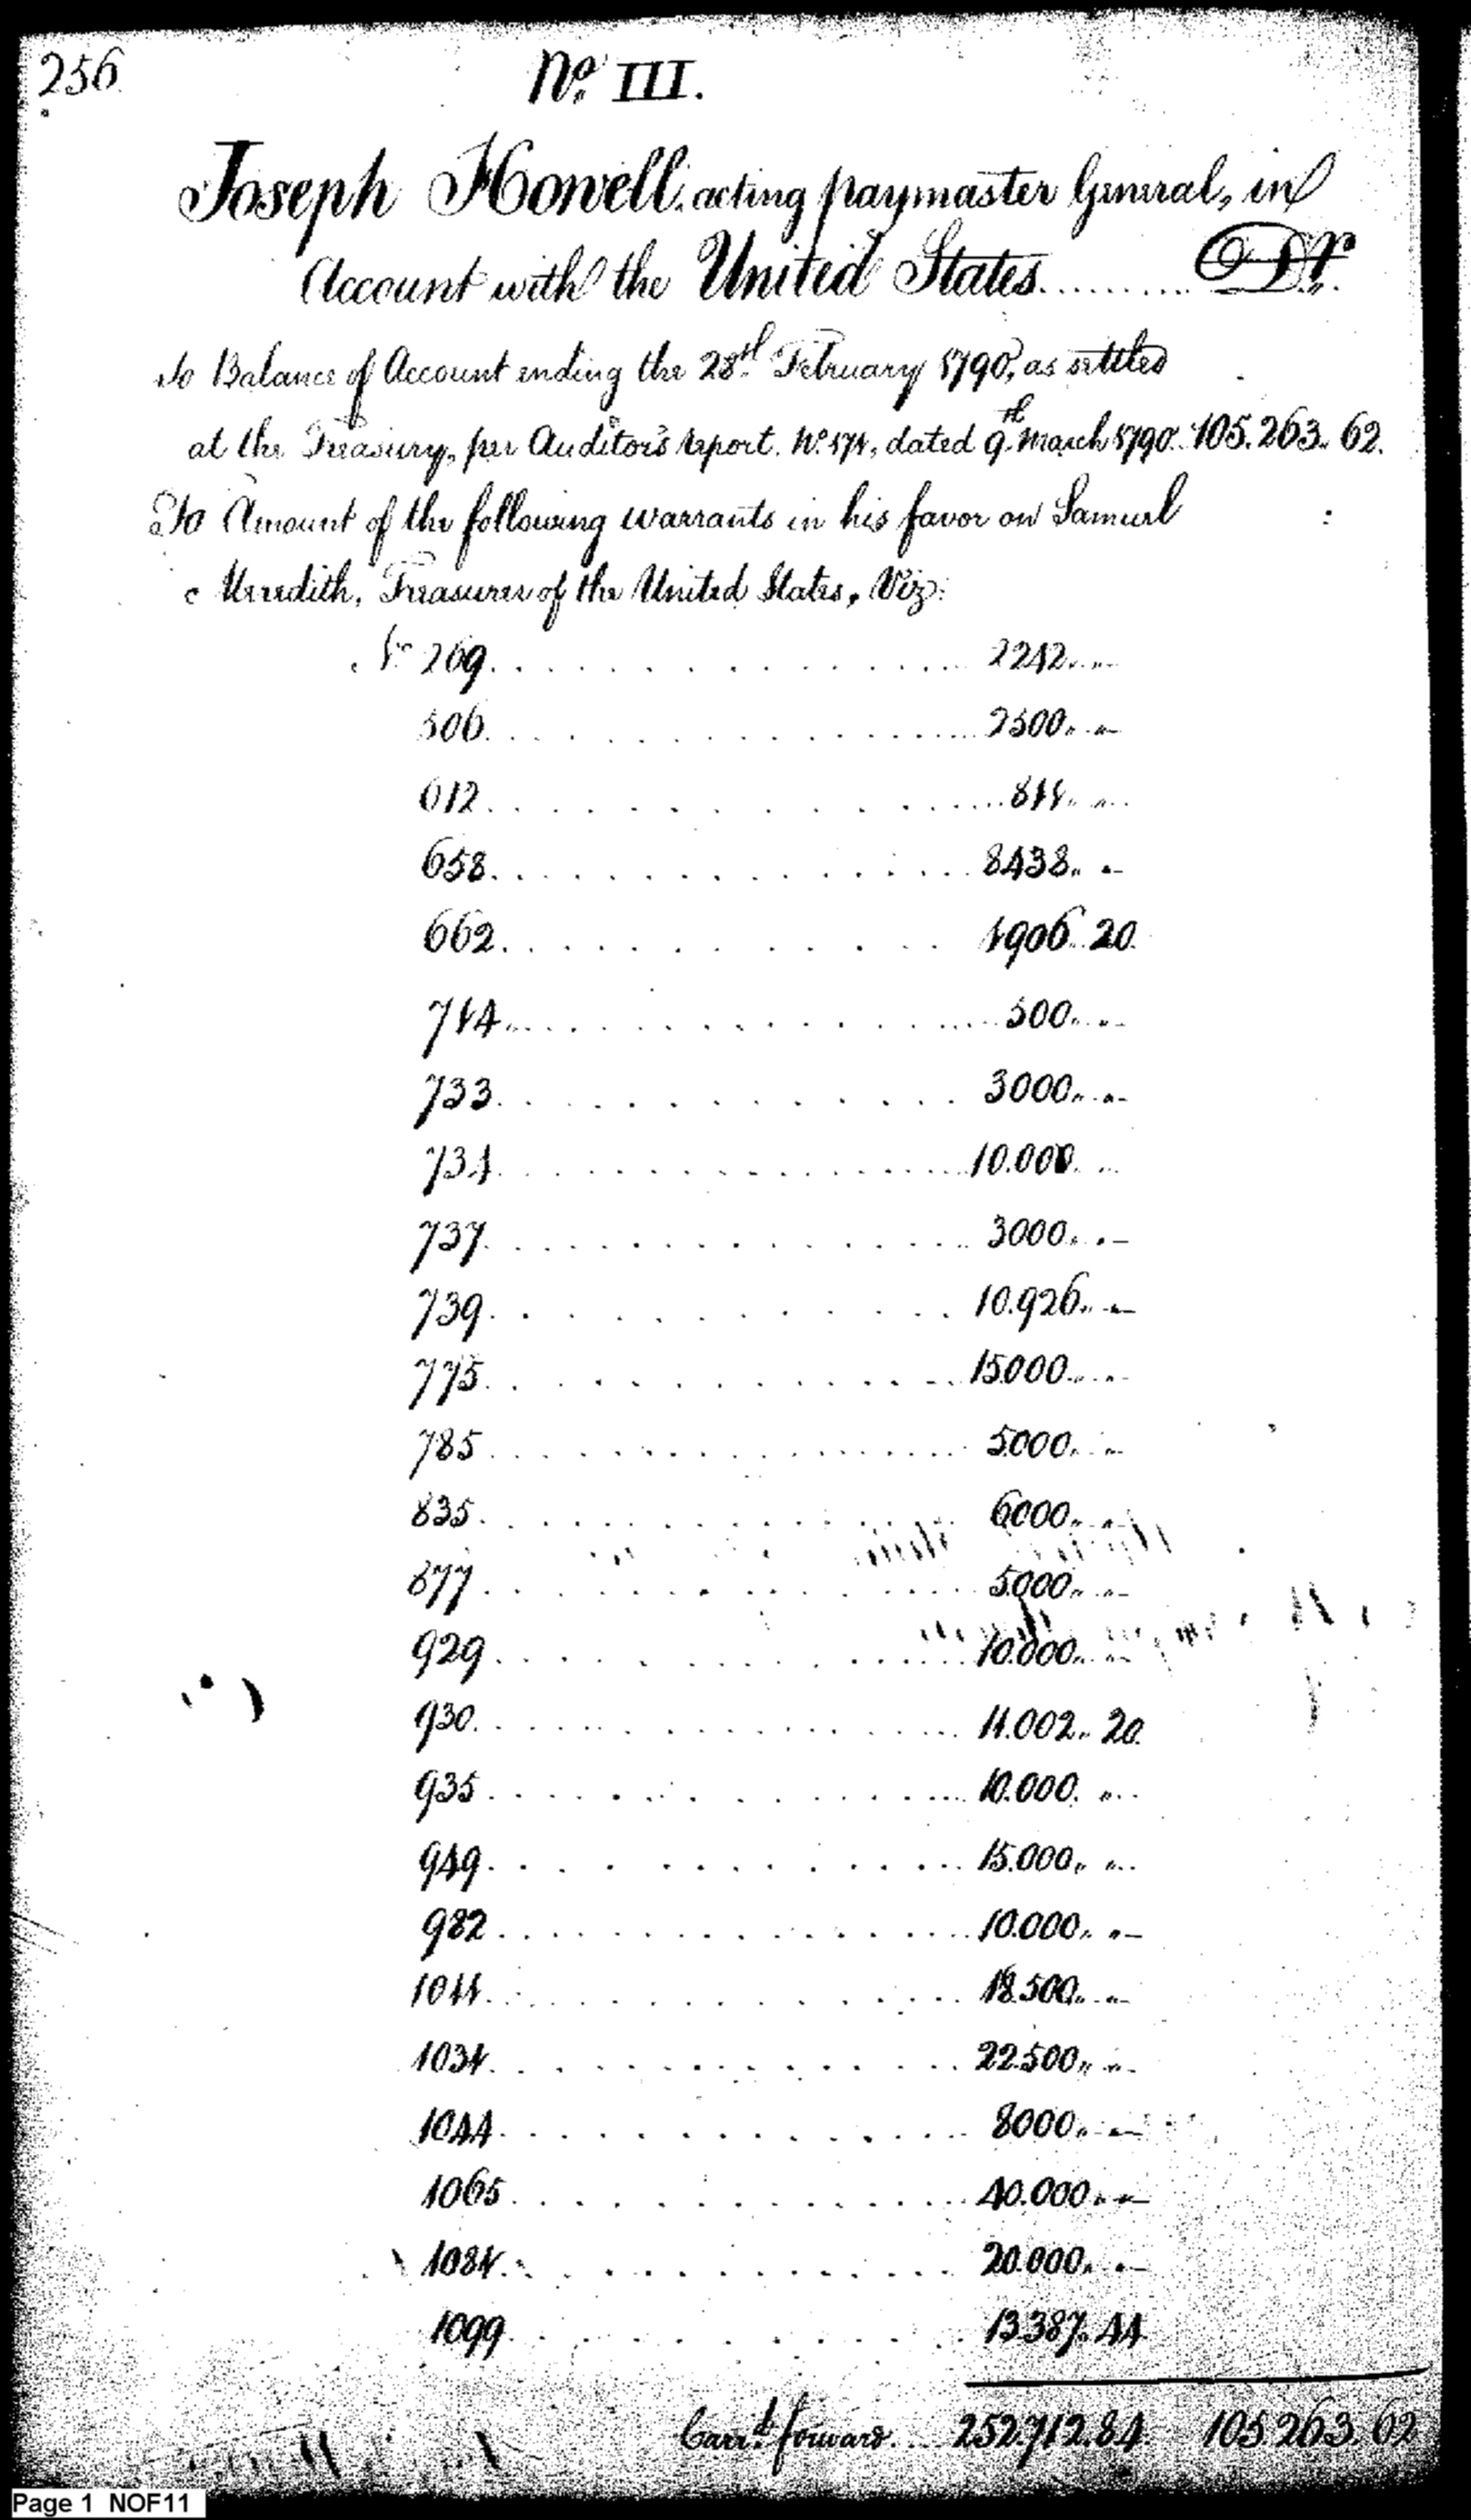 256
No. III.
Joseph Howell, acting paymaster General, in
Account with the United States.......... Dr.
To Balance of Account ending the 28th February 1790, as settled
at the Treasury, per Auditor's report. No. 171, dated 9th March 1790. 105.263.. 62.
To Amount of the following warrants in his favor on Samuel
Meredith, Treasurer of the United States, Viz:
No 269. . . . . . . . . . 2242.. "
506. . . . . . . . . . 2500.. "
612. . . . . . . . . . 811.. "
658. . . . . . . . . . 8438.. "
662. . . . . . . . . . 1906.. 20.
714. . . . . . . . . . 500.. "
733. . . . . . . . . . 3000.. "
734. . . . . . . . . . 10.000. "
737. . . . . . . . . . 3000.. "
739. . . . . . . . . . 10.926.. "
775. . . . . . . . . . 15.000.. "
785. . . . . . . . . . 5.000.. "
835. . . . . . . . . . 6000.. "
877. . . . . . . . . . 5.000.. "
929. . . . . . . . . . 10.000.. "
930. . . . . . . . . . 11.002.. 20.
935. . . . . . . . . . 10.000. "
949. . . . . . . . . . 15.000.. "
982. . . . . . . . . . 10.000.. "
1011. . . . . . . . . . 18.500.. "
1031. . . . . . . . . . 22.500.. "
1044. . . . . . . . . . 8000.. "
1065. . . . . . . . . . 40.000.. "
1081. . . . . . . . . . 20.000.. "
1099. . . . . . . . . . 13.387.. 44.
Carrd. forward.... 252.712.84. 105.263.62
Page 1 NOF11